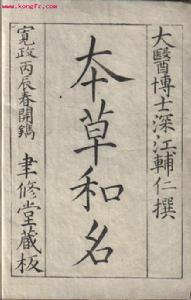 www.kongfz.com
大醫博士深江輔仁撰
本草和名
寛政丙辰春開鐫
聿修堂蔵板